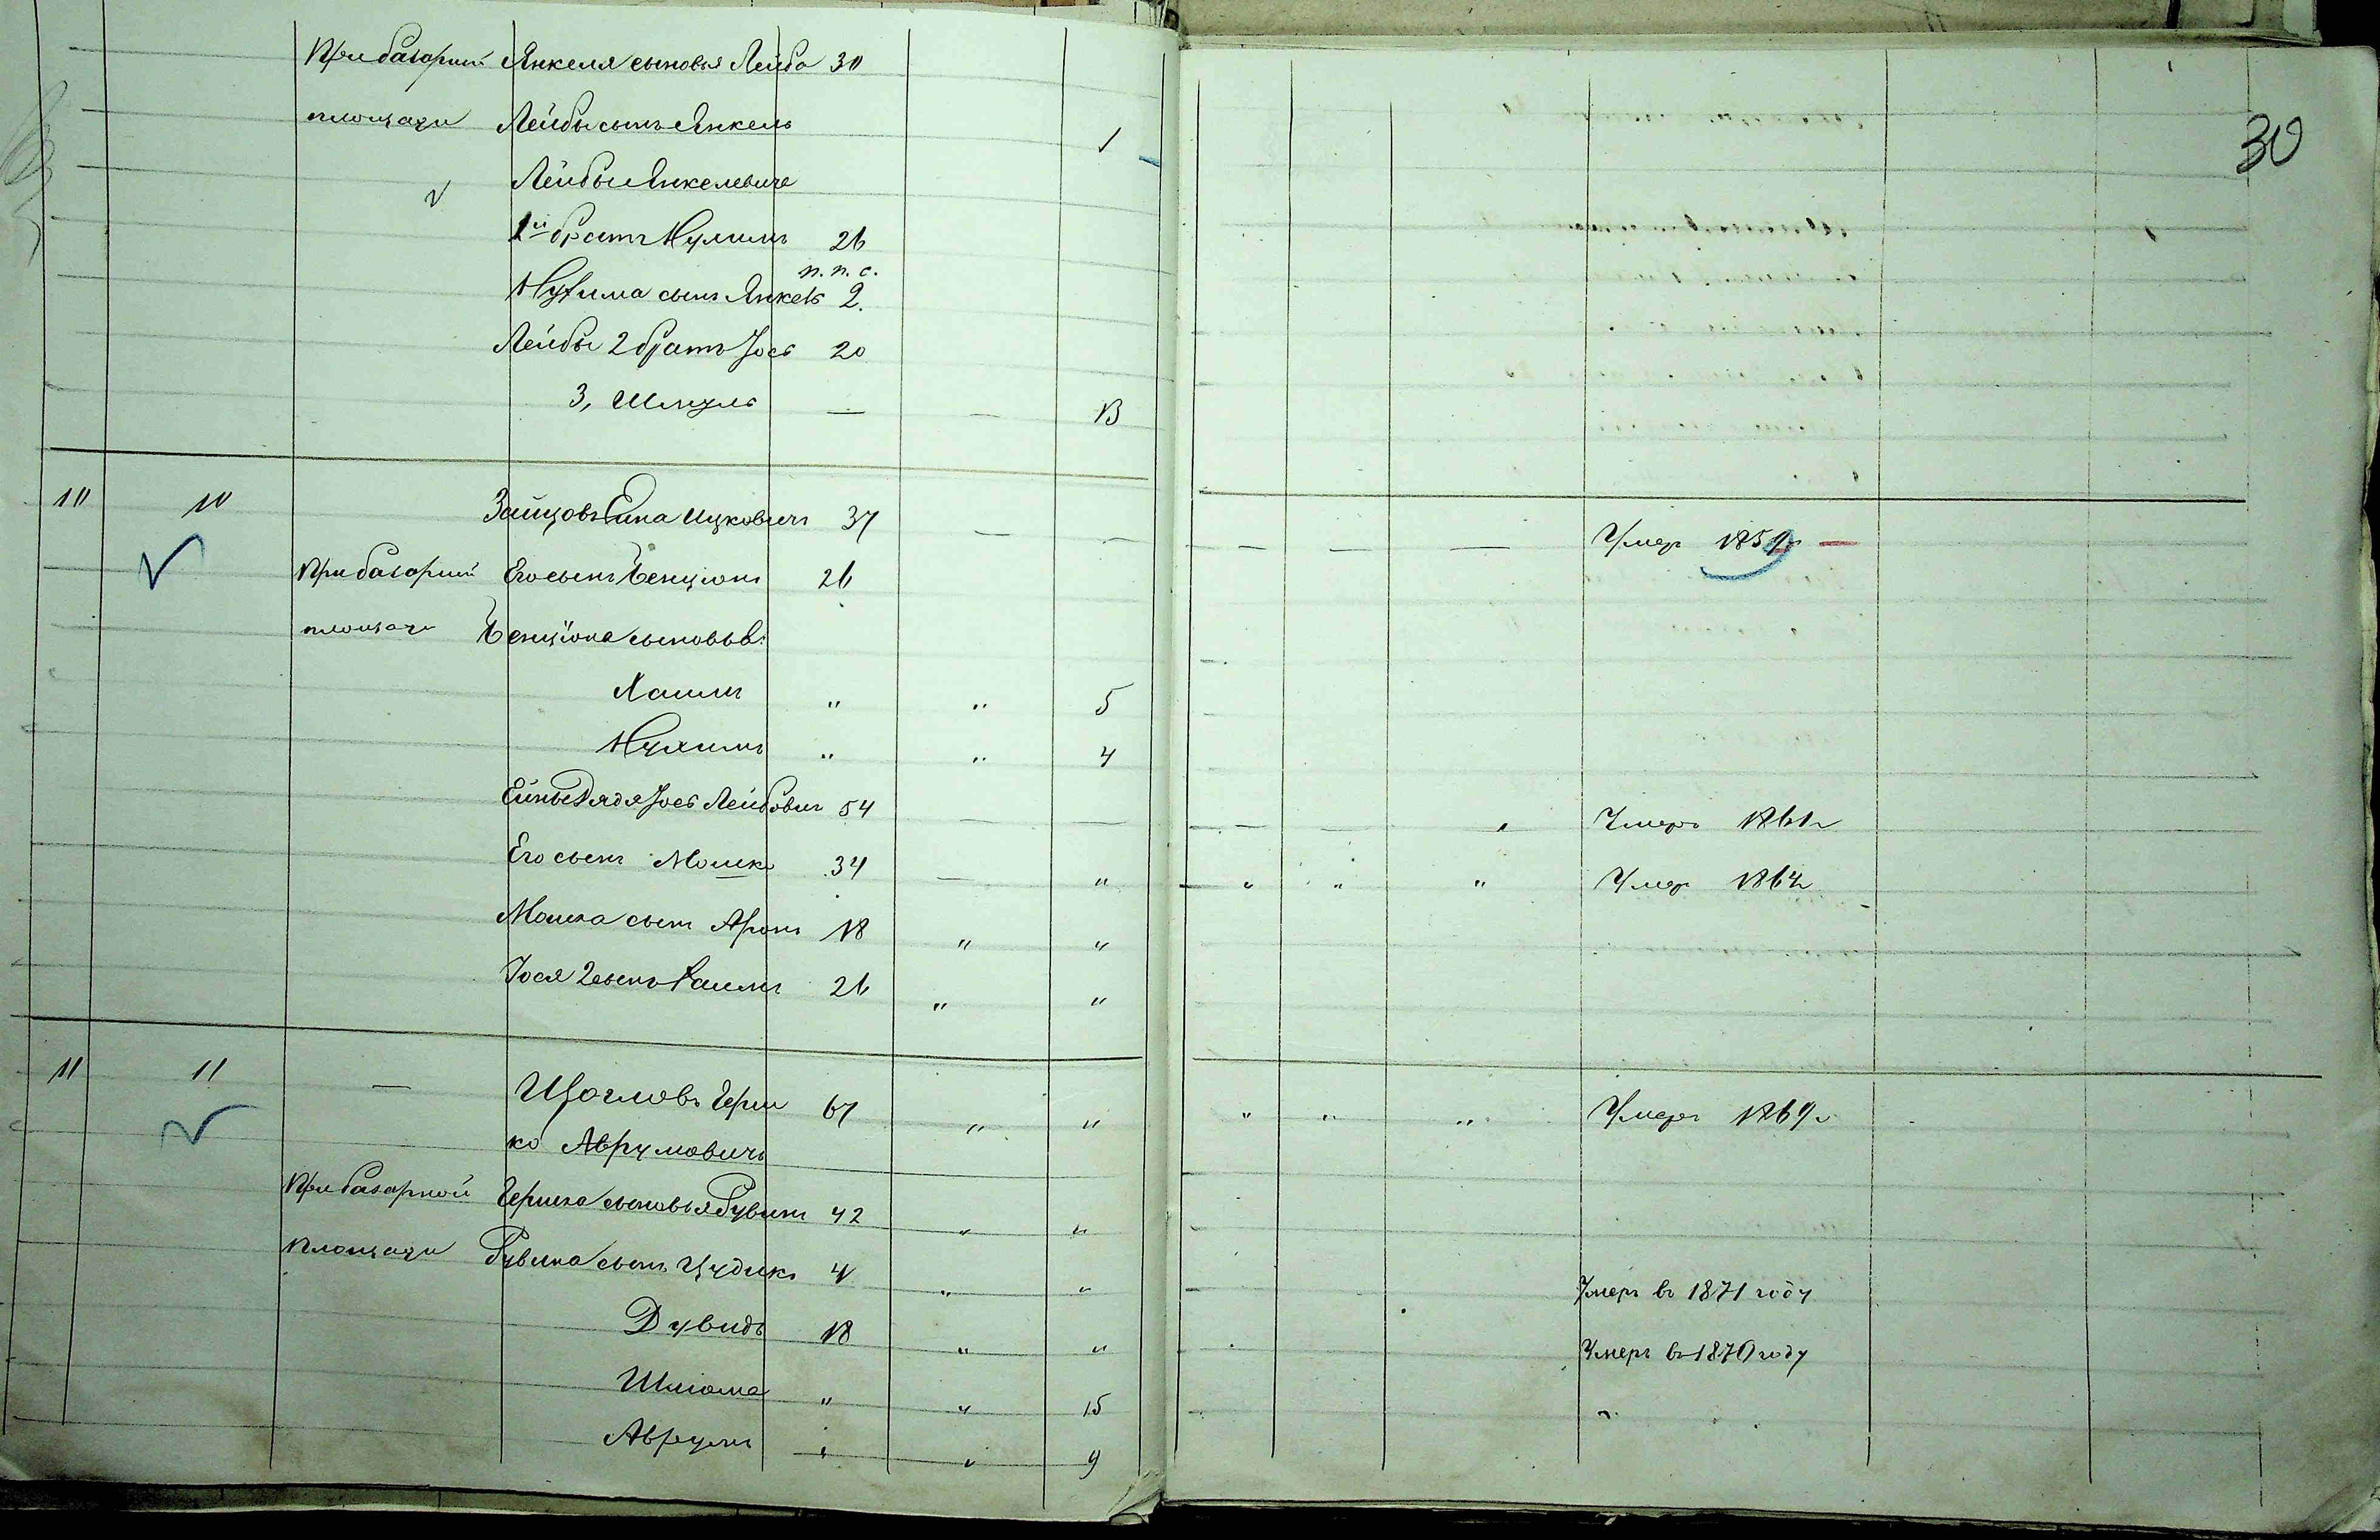 30
При базарной Янкеля сыновья Лейба 30
площади Лейбы сынъ Янкель 1
Лейбы Янкелевича
1й братъ Нухимъ 26
п. п. с.
Нухима сынъ Янкель 2.
Лейбы 2 братъ Іось 20
3, Шмуль — — 13
10 10 Зайцовъ Ейна Ицковичъ 37 — — — — — Умеръ 1859г
При базарной Его сынъ Бенціонъ 26
площади Бенціона сыновья:
Хаимъ " " 5
Нухимъ " " 4
Ейны дядя Іось Лейбовичъ 54 — — — — " Умеръ 1861г
Его сынъ Мошко 34 — " " " " Умеръ 1864г
Мошка сынъ Аронъ 18 " "
Іося 2 сынъ Хаимъ 26 " "
11 11 — Щогловъ Герш 67 " " " " " Умеръ 1869г
ко Аврумовичъ
При базарной Гершка сыновья Рувинъ 42 " "
площади Рувина сынъ Цудикъ 4 " " Умеръ въ 1871 году
Дувидъ 18 " " Умеръ въ 1870 году
Шлiома " " 15 "
Аврумъ " " 9